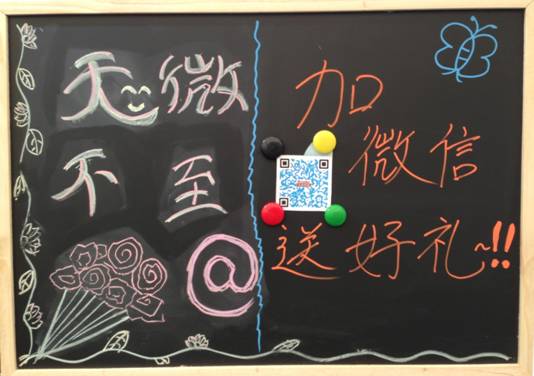 无微
不至
@
加
微信
送好礼~!!